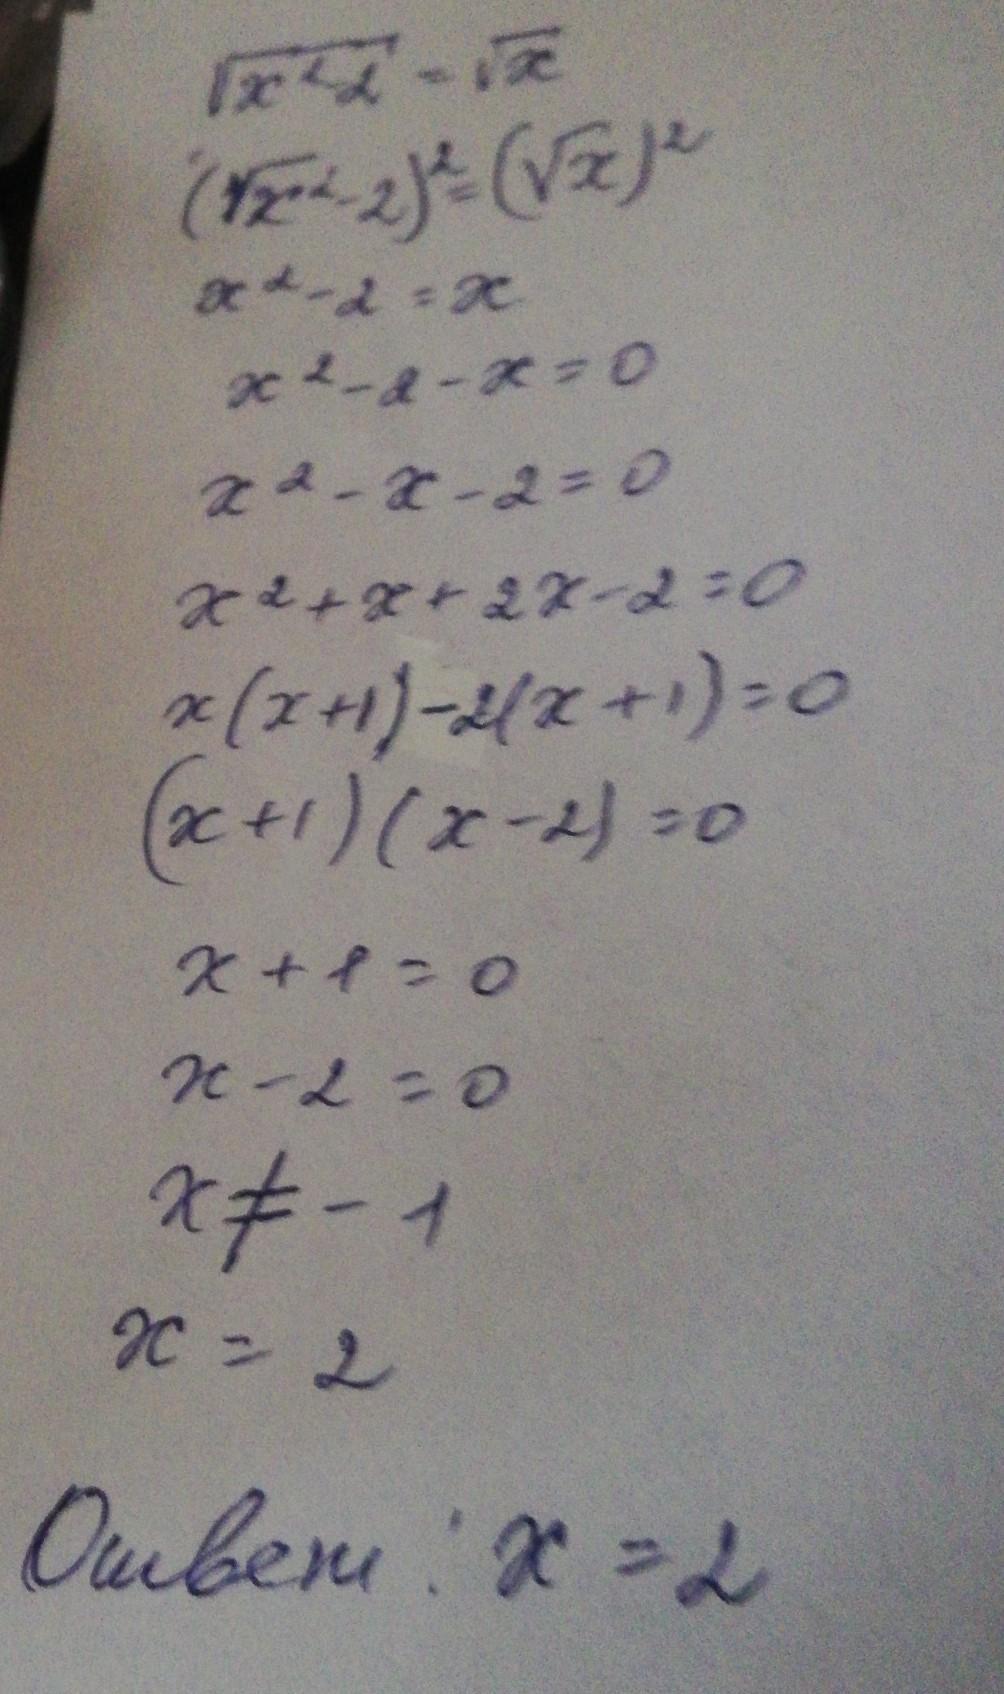 √x²-2 = √x
(√x²-2)²=(√x)²
x²-2=x
x²-2-x=0
x²-x-2=0
x²+x+2x-2=0
x(x+1)-2(x+1)=0
(x+1)(x-2)=0
x+1=0
x-2=0
x≠-1
x=2
Ответ: x=2